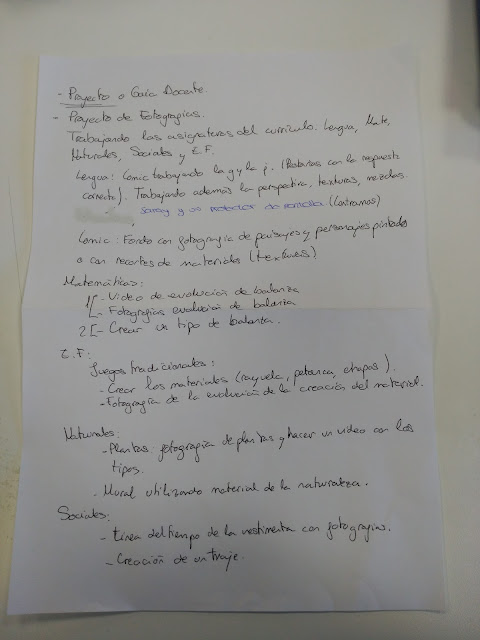 - Proyecto o Guía Docente.
- Proyecto de Fotografías.
Trabajando las asignaturas del currículo. Lengua, Mate,
Naturales, Sociales y E.F.
Lengua: Comic trabajando la g y la j. (Rotarlas con la respuesta
correcta). Trabajando además la perspectiva, texturas, mezclas.
(Contrarios)
Comic: Fondo con fotografía de paisajes y personajes pintados
o con recortes de materiales (texturas)
Matemáticas:
1[ - Video de evolución de balanza
- Fotografías evolución de balanza
2[ - Crear un tipo de balanza.
E.F:
Juegos tradicionales:
- Crear los materiales (rayuela, petanca, chapas).
- Fotografía de la evolución de la creación del material.
Naturales:
- Plantas: fotografía de plantas y hacer un video con los
tipos.
- Mural utilizando material de la naturaleza.
Sociales:
- Línea del tiempo de la vestimenta con fotografías.
- Creación de un traje.